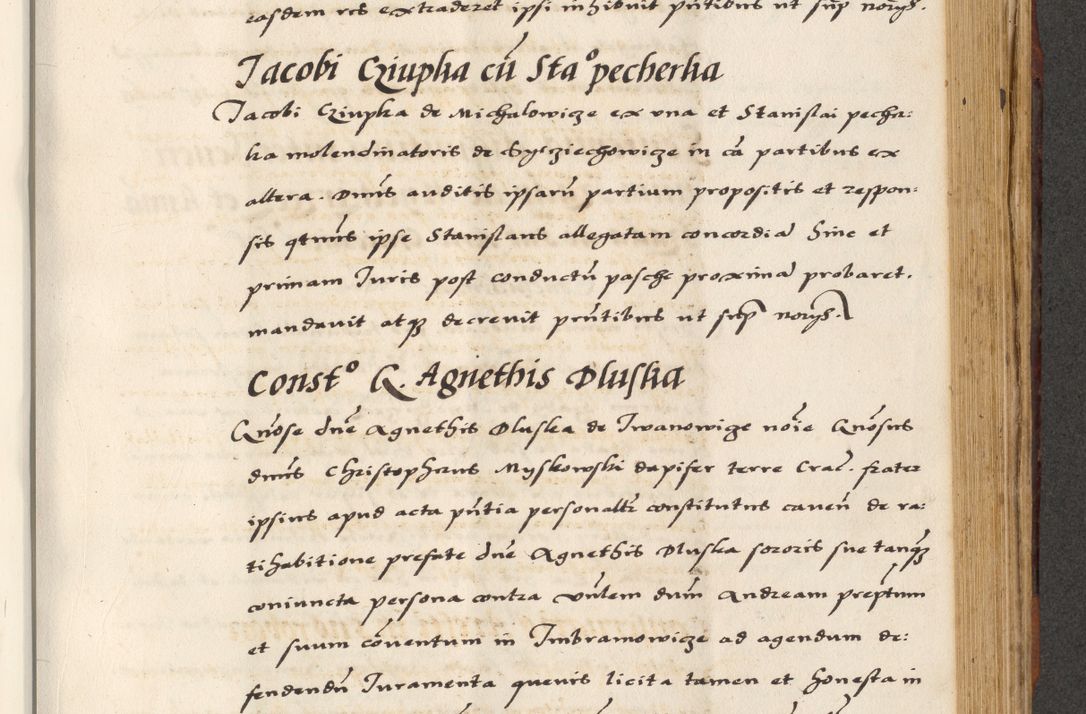 easdem res extraderet ipsi inhibuit pñtibus ut sup noiys.
Jacobi Cziupka cũ Sta° pecherka
Jacobi Cziupka de Michalowicze ex una et Stanislai pecher:
ka molendinatoris de Sycziechowicze in cã partibus ex
altera. Dnus auditis ipsarũ partium propositis et respon:
sis qtnus ipse Stanislaus allegatam concordiã hinc et
primam Juris post conductũ pasche proximã probaret.
mandavit atqʒ decrevit pñtibus ut sup noiys.
Const° G. Agnethis Dluska
Gnõse dnẽ Agnethis Dluska de Iwanowicze noĩe Gnõsus
dnus Christophorus Myskowski dapifer terre Crac. frater
ipsius apud acta pñtia personalr constitutus caveñ de ra:
tihabitione prefate dnẽ Agnethis Dluska sororis sue tanqʒ
coniuncta persona contra vñlem dnum Andream prepitum
et suum cõventum in Imbramowicze ad agendum de:
fendendũ Juramenta quevis licita tamen et honesta in